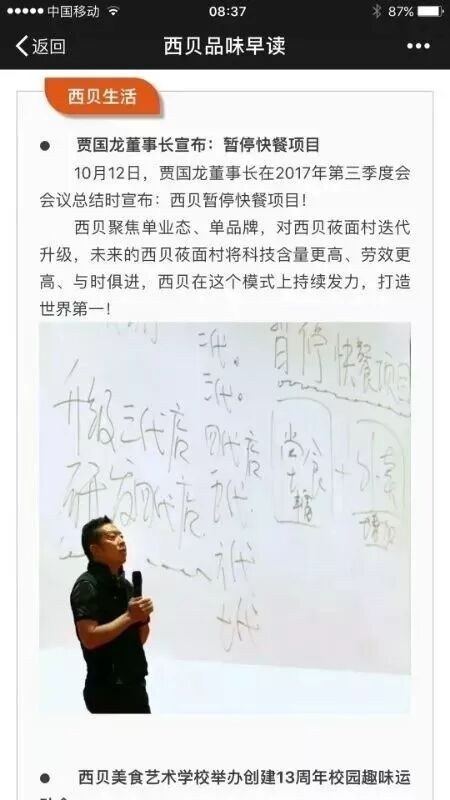 中国移动 08:37 87%
返回 西贝品味早读
西贝生活
● 贾国龙董事长宣布：暂停快餐项目
10月12日，贾国龙董事长在2017年第三季度会
会议总结时宣布：西贝暂停快餐项目！
西贝聚焦单业态、单品牌，对西贝莜面村迭代
升级，未来的西贝莜面村将科技含量更高、劳效更
高、与时俱进，西贝在这个模式上持续发力，打造
世界第一！
暂停快餐项目
升级三代店
研发四代店
二代。
三代。
四代店
五代
六代
七代
● 西贝美食艺术学校举办创建13周年校园趣味运